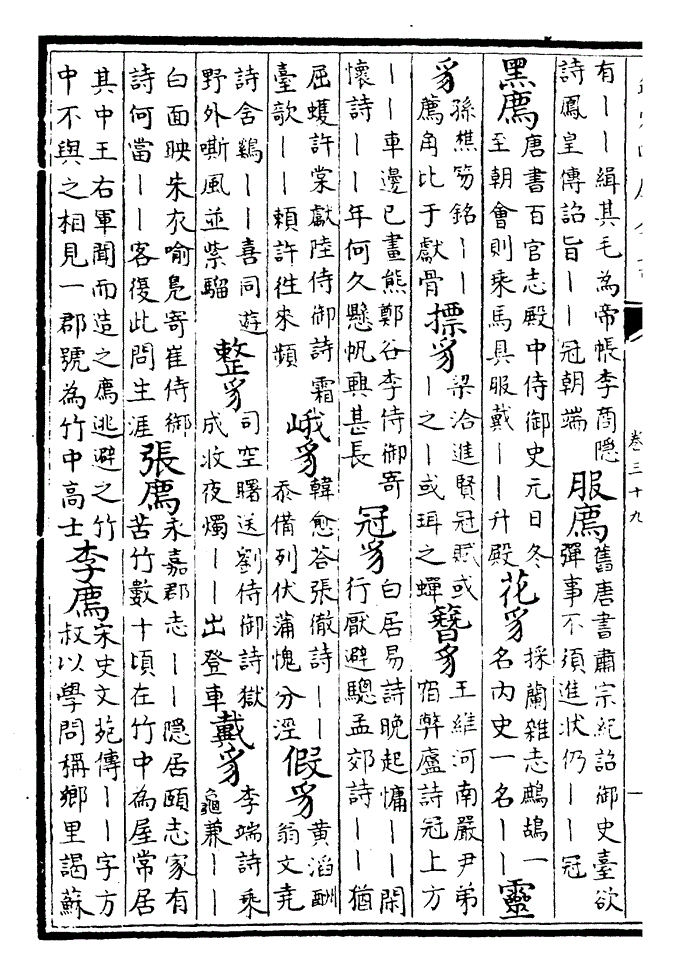 卷三十九
一
有——緝其毛為帝帳李商隱
詩鳳皇傳詔旨——冠朝端
服廌
舊唐書肅宗紀詔御史臺欲
彈事不須進狀仍——冠
黑廌
唐書百官志殿中侍御史元日冬
至朝會則乘馬具服戴——升殿
花豸
採蘭雜志鷓鴣一
名內史一名——
靈
豸
孫樵笏銘——
廌角比于獻骨
摽豸
梁洽進賢冠賦或
—之—或珥之蟬
簪豸
王維河南嚴尹弟
宿弊廬詩冠上方
——車邊已畫熊鄭谷李侍御寄
懷詩——年何久懸帆興甚長
冠豸
白居易詩晚起慵——閑
行厭避驄孟郊詩——猶
屈蠖許棠獻陸侍御詩霜
臺歌——賴許往來頻
峨豸
韓愈答張徹詩——
忝備列伏蒲愧分涇
假豸
黃滔酬
翁文堯
詩舍鷄——喜同遊
野外嘶風並紫騮
整豸
司空曙送劉侍御詩獄
成收夜燭——出登車
戴豸
李端詩乘
龜兼——
白面映朱衣喻鳧寄崔侍御
詩何當——客復此問生涯
張廌
永嘉郡志——隱居頤志家有
苦竹數十頃在竹中為屋常居
其中王右軍聞而造之廌逃避之竹
中不與之相見一郡號為竹中高士
李廌
宋史文苑傳——字方
叔以學問稱鄉里謁蘇